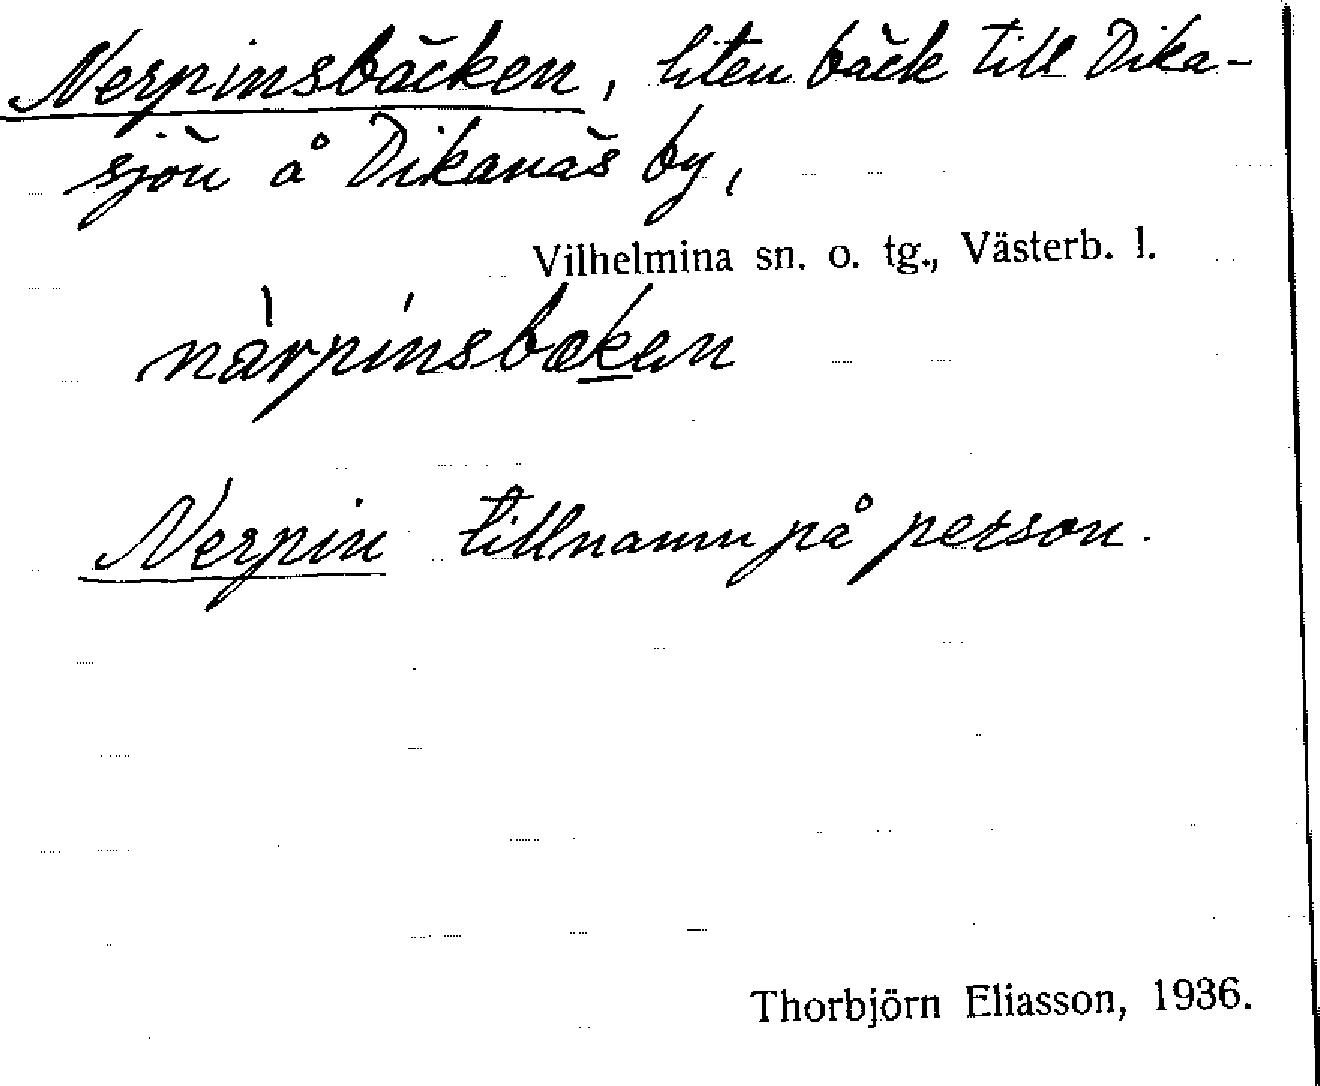 Nerpinsbäcken, liten bäck till Dika-
sjön å Dikanäs by,
Vilhelmina sn. o. tg., Västerb. l.
nàrpínsbæken
Nerpin tillnamn på person.
Thorbjörn Eliasson, 1936.